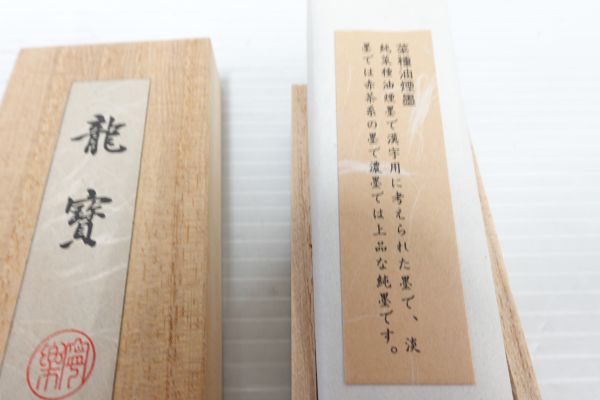 龍寶
菜種油煙墨
純菜種油煙墨で漢字用に考えられた墨で、淡
墨では赤茶系の墨で濃墨では上品な純墨です。